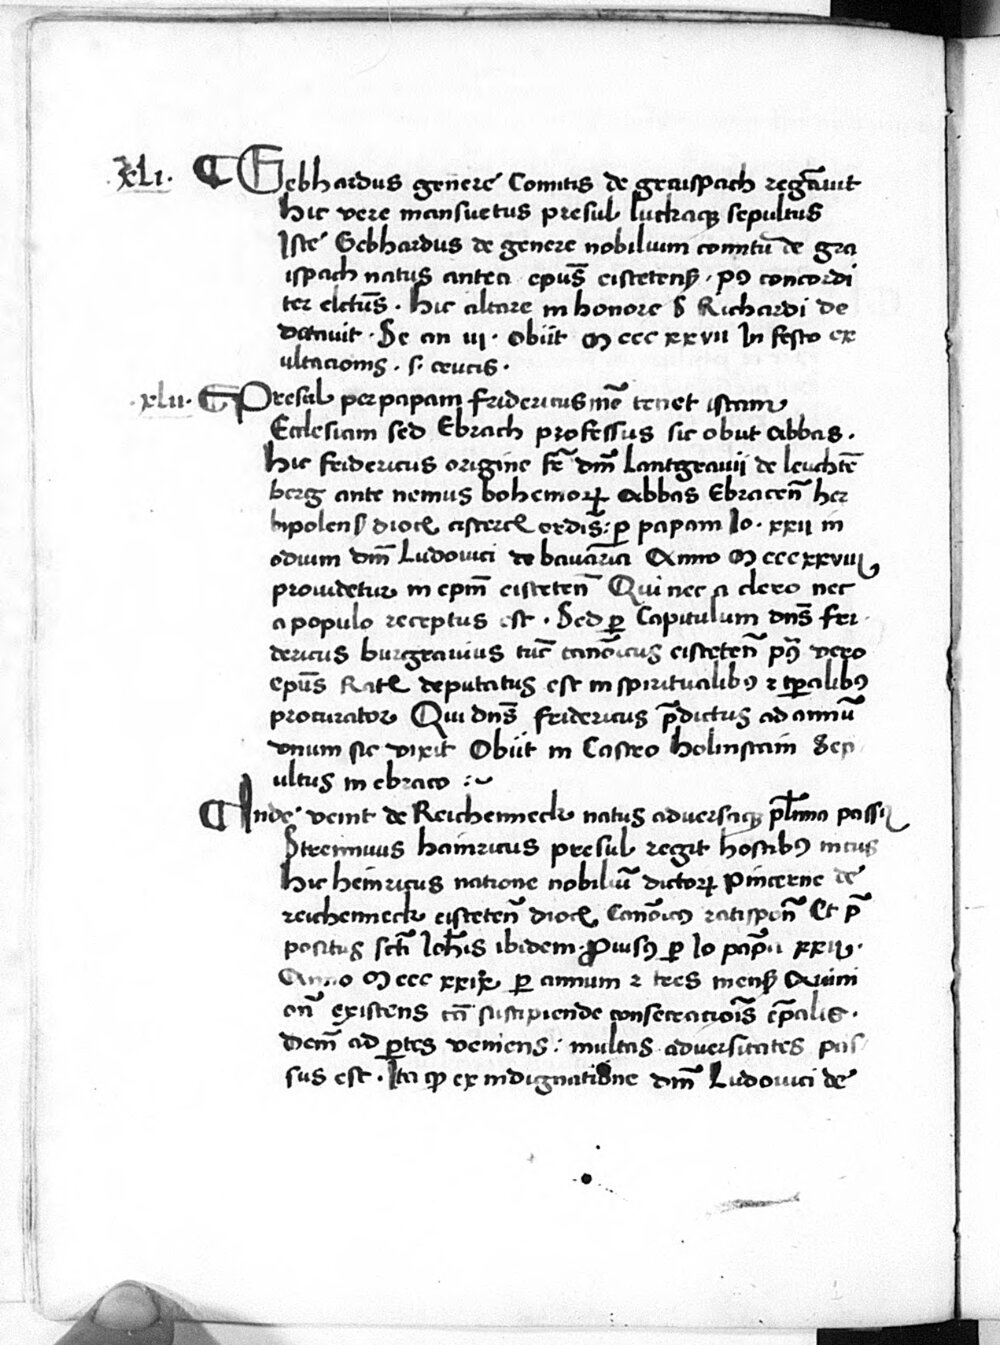 xLi. Gebhardus genere Comitis de graispach regnavit
hic vere mansuetus presul luckaque sepultus
Iste Gebhardus de genere nobilium comitū de gra
ispach natus antea epūs eistetens. concordi
ter elctūs. hic altare in honore s Richardi de
Se an iii. obiit M ccc xxvii In festo ex
ultacionis. s. crucis.
xLii. Presul per papam fridericus nōe tenet istam
Ecclesiam sed Ebrach professus sic obut abbas.
hic fridericus origine dnī Lantgravii de leuchtē
berg ante nemus bohemorꝝ abbas Ebracen̄ her
bipolens dioc cisterc ordīs: ꝑ papam Io. xxii in
odium dnī Ludovici de bavaria Anno M cccxxviii
providetur in epm̄ eisteten̄ Qui nec a clero nec
a populo receptus est. Sed ꝑ Capitulum dn̄s fri
dericus burgravius tūc canōicus eisteten̄ vero
epūs Rat deputatus est in spiritualibꝯ ⁊ tꝑalibꝯ
procurator Qui dn̄s fridericus p̄dictus ad annū
unum sic vixit Obiit in Castro holinstain Sep
ultus in ebraco :~
Inde venit de Reicheneck natus adversaque plīma passꝰ
Strennuus hainricus presul regit hostibꝯ intus
hic heinricus natione nobiliū dictorꝝ Pincerne de
reicheneck eisteten̄ dioc Canōicꝯ ratispon̄ Et p̄
positus sct̄i Ioh̄is ibidem. ꝓvisꝯ ꝑ Io papā xxii.
Anno M ccc xxix ꝑ annum ⁊ tres mens Avini
on̄ existens cā suscipiende consecracioīs ep̄alis.
dem̄ ad ꝑtes veniens: multas adversitates pas
sus est. Ita ꝙ ex indignatione dnī Ludovici de